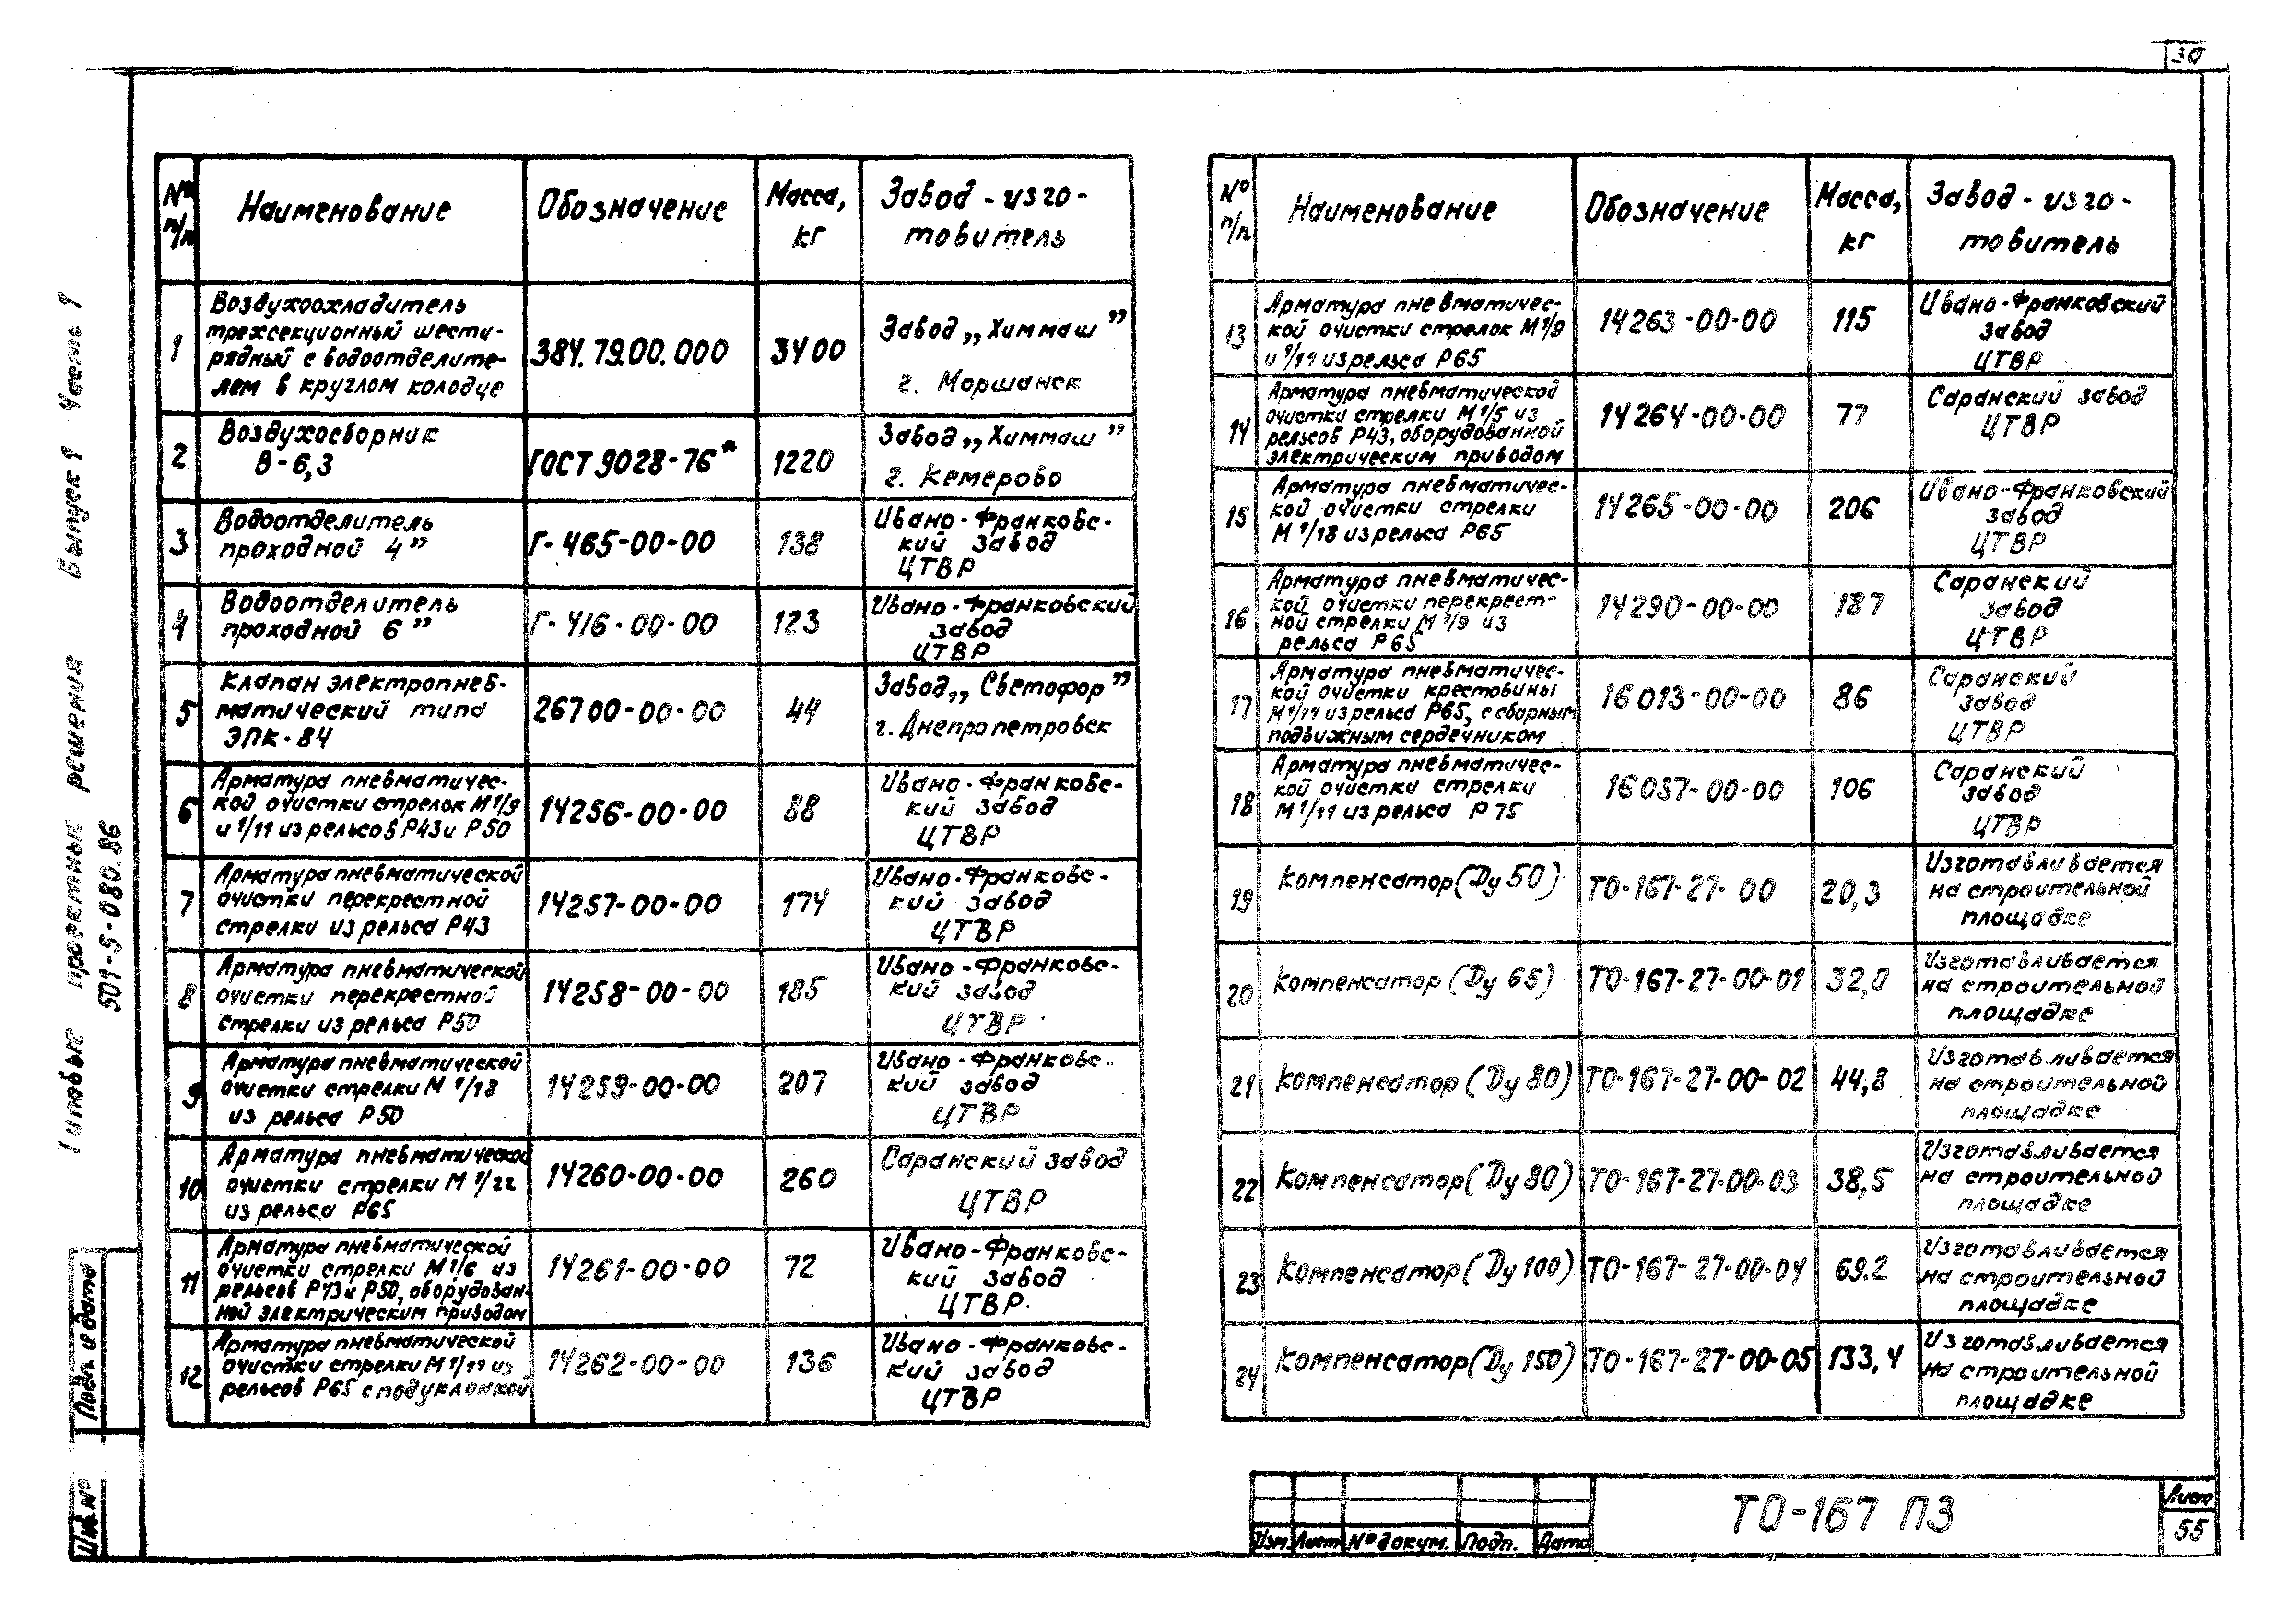 30
Типовые проектные решения Выпуск 1 Часть 1
501-5-080.86
Подп. и дата
Инв. №
№ п/п
Наименование
Обозначение
Масса, кг
Завод-изго-
товитель
1
Воздухоохладитель
трехсекционный шести-
рядный с водоотделите-
лем в круглом колодце
384.79.00.000
3400
Завод „Химмаш”
г. Моршанск
2
Воздухосборник
В-6,3
ГОСТ 9028-76*
1220
Завод „Химмаш”
г. Кемерово
3
Водоотделитель
проходной 4”
Г-465-00-00
138
Ивано-Франковс-
кий завод
ЦТВР
4
Водоотделитель
проходной 6”
Г-416-00-00
123
Ивано-Франковский
завод
ЦТВР
5
Клапан электропнев-
матический типа
ЭПК-84
26700-00-00
44
Завод „Светофор”
г. Днепропетровск
6
Арматура пневматичес-
кой очистки стрелок М 1/9
и 1/11 из рельсов Р43 и Р50
14256-00-00
88
Ивано-Франковс-
кий завод
ЦТВР
7
Арматура пневматической
очистки перекрестной
стрелки из рельса Р43
14257-00-00
174
Ивано-Франковс-
кий завод
ЦТВР
8
Арматура пневматической
очистки перекрестной
стрелки из рельса Р50
14258-00-00
185
Ивано-Франковс-
кий завод
ЦТВР
9
Арматура пневматической
очистки стрелки М 1/18
из рельса Р50
14259-00-00
207
Ивано-Франковс-
кий завод
ЦТВР
10
Арматура пневматической
очистки стрелки М 1/22
из рельса Р65
14260-00-00
260
Саранский завод
ЦТВР
11
Арматура пневматической
очистки стрелки М 1/6 из
рельсов Р43 и Р50, оборудован-
ной электрическим приводом
14261-00-00
72
Ивано-Франковс-
кий завод
ЦТВР
12
Арматура пневматической
очистки стрелки М 1/11 из
рельсов Р65 с подуклонкой
14262-00-00
136
Ивано-Франковс-
кий завод
ЦТВР
№ п/п
Наименование
Обозначение
Масса, кг
Завод-изго-
товитель
13
Арматура пневматичес-
кой очистки стрелок М 1/9
и 1/11 из рельса Р65
14263-00-00
115
Ивано-Франковский
завод
ЦТВР
14
Арматура пневматической
очистки стрелки М 1/5 из
рельсов Р43, оборудованной
электрическим приводом
14264-00-00
77
Саранский завод
ЦТВР
15
Арматура пневматичес-
кой очистки стрелки
М 1/18 из рельса Р65
14265-00-00
206
Ивано-Франковский
завод
ЦТВР
16
Арматура пневматичес-
кой очистки перекрест-
ной стрелки М 1/9 из
рельса Р65
14290-00-00
187
Саранский
завод
ЦТВР
17
Арматура пневматичес-
кой очистки крестовины
М 1/11 из рельса Р65, с сборным
подвижным сердечником
16013-00-00
86
Саранский
завод
ЦТВР
18
Арматура пневматичес-
кой очистки стрелки
М 1/11 из рельса Р75
16037-00-00
106
Саранский
завод
ЦТВР
19
Компенсатор (Ду 50)
ТО-167-27-00
20,3
Изготавливается
на строительной
площадке
20
Компенсатор (Ду 65)
ТО-167-27-00-01
32,0
Изготавливается
на строительной
площадке
21
Компенсатор (Ду 80)
ТО-167-27-00-02
44,8
Изготавливается
на строительной
площадке
22
Компенсатор (Ду 80)
ТО-167-27-00-03
38,5
Изготавливается
на строительной
площадке
23
Компенсатор (Ду 100)
ТО-167-27-00-04
69.2
Изготавливается
на строительной
площадке
24
Компенсатор (Ду 150)
ТО-167-27-00-05
133,4
Изготавливается
на строительной
площадке
Изм. Лист № докум. Подп. Дата
ТО-167 ПЗ
Лист
55